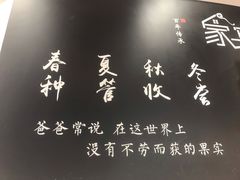 百年传承
春种
夏管
秋收
冬藏
爸爸常说 在这世界上
没有不劳而获的果实